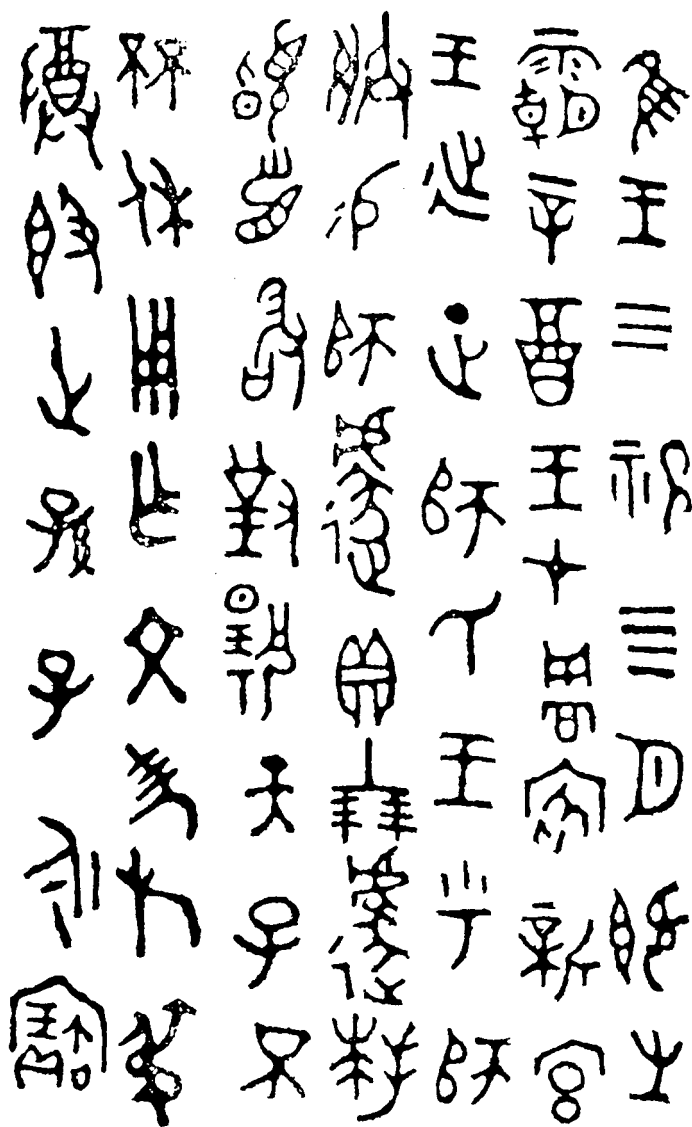 隹王三祀四月既生
霸辛酉王才周客新宮
王延正師氏王乎師
朕易師遽貝十朋遽拜
𩒨首敢對揚天子不
𠦪休用乍文考旄叔
尊𣪘世孫子永寶